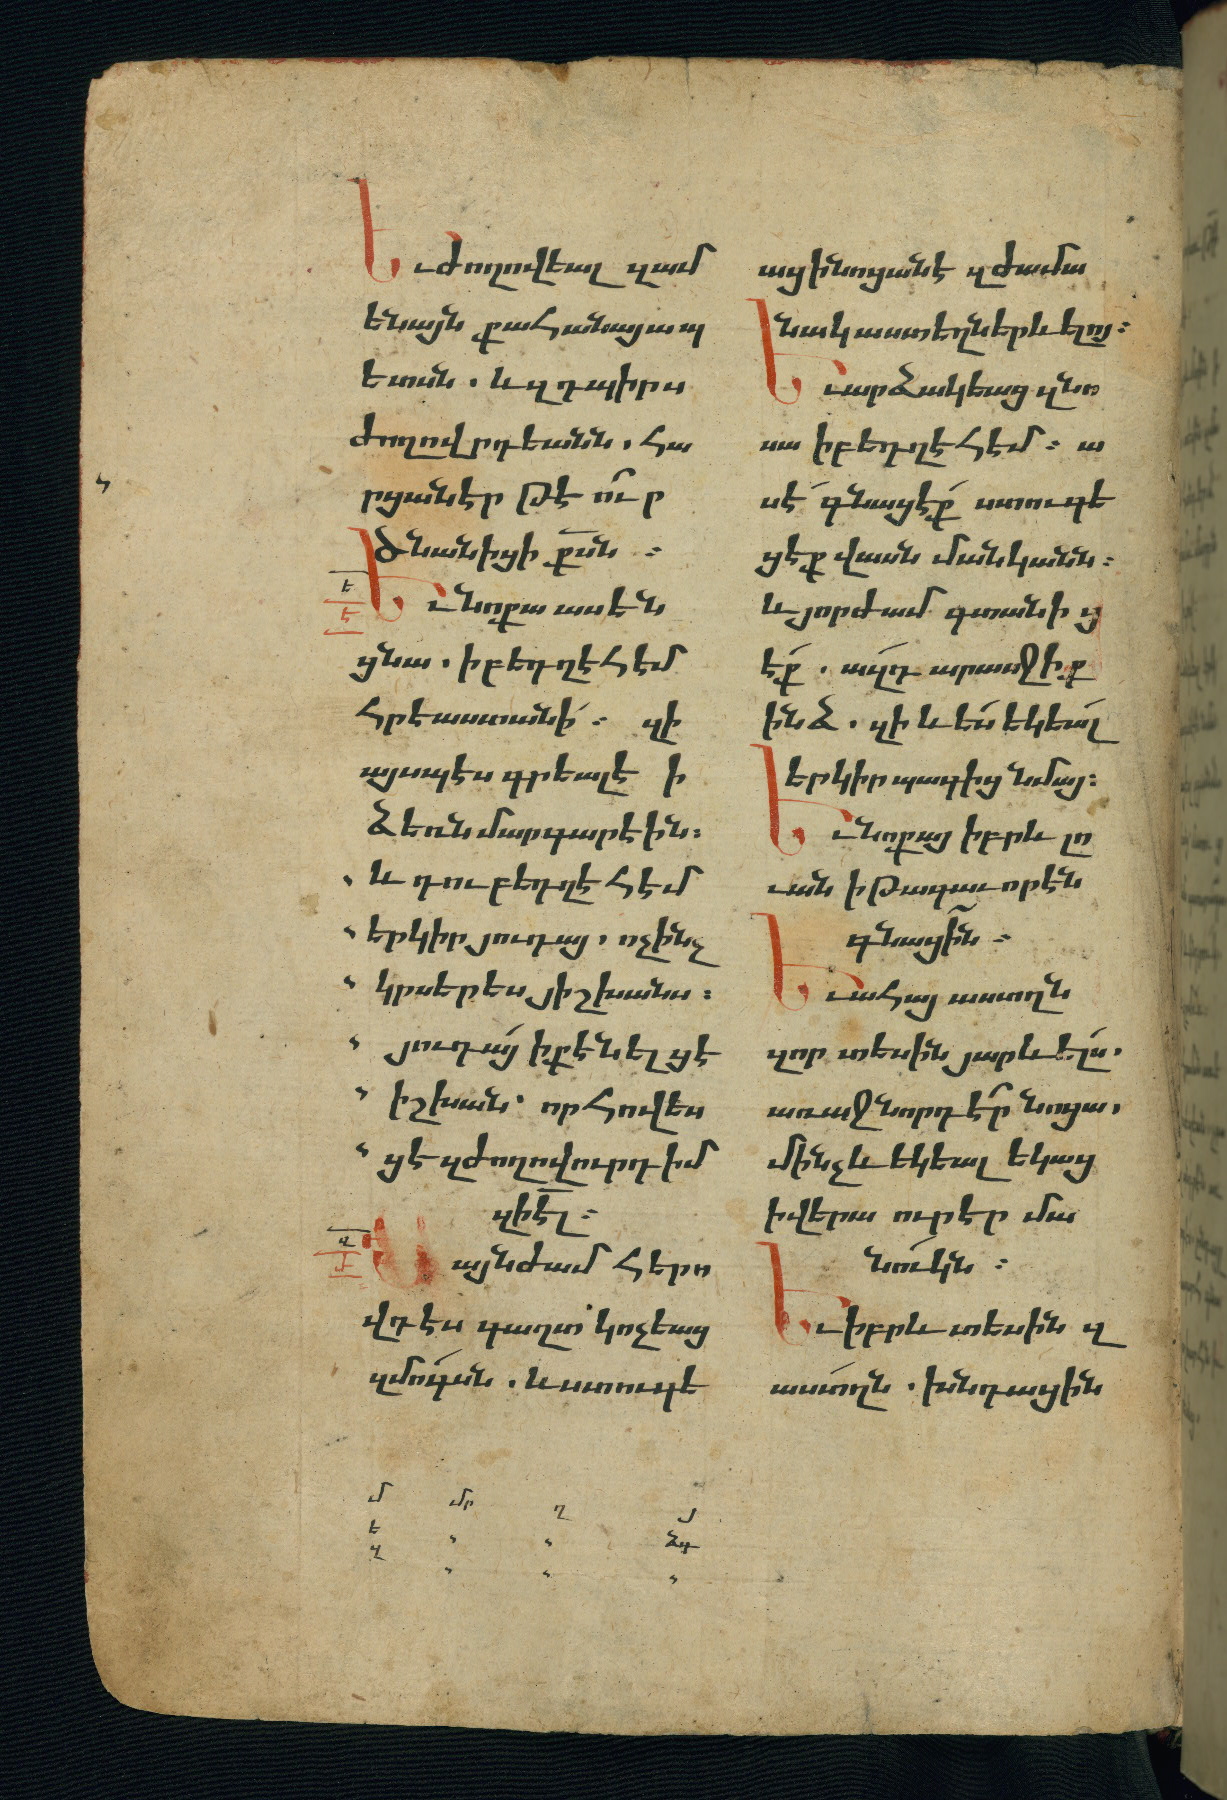 Եւ ժողովեալ զամ
ենայն քահանայապ
ետսն . և զդպիրս
ժողովրդեանն , հա
րցաներ թէ ո՛ւր
ծնանիցի ք̅սն ։
ե
ե
Եւ նոքա ասեն
ցնա . ի բեդղէհէմ
հրէաստանի՛ ։ զի
այսպէս գրեալէ ի
ձեռն մարգարէին ։
և դու բեդղէհէմ
երկիր յուդայ , ոչինչ
կրսերես յիշխանս ։
յուդա՛յ ի քէն ելցէ
իշխան՝ որ հովես
ցէ զժողովուրդ իմ
զի̅է̅լ ։
զ
Ժ
Այնժամ հերո
վդէս գաղտ կոչեաց
զմո՛գսն . և ստուգե
ալ ի նոցանէ զժամա
նակ աստեղն երևելոյ ։
Եւ արձակեաց զնո
սա ի բեդղէհէմ ։ ա
սէ՛ գնացէ՛ք ստուգե
ցէք վասն մանկանն ։
և յորժամ գտանից
է՛ք . ա՛զդ արասջիք
ինձ . զի և ես եկեա՛լ
երկիր պագից նմայ ։
Եւ նոքայ իբրև լը
ւան ի թագաւորէն
գնացի՛ն ։
Եւ ահայ աստղն
զոր տեսին յարևե՛լս .
առաջնորդէ՛ր նոցա ,
մինչև եկեալ եկաց
ի վերա ուր էր մա
նո՛ւկն ։
Եւ իբրև տեսին զ
աստղն . խնդացին
մ մր ղ յ
ե ձգ
զ